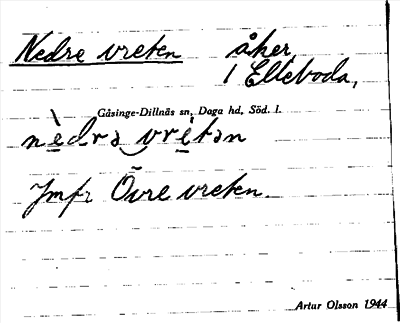 Nedre vreten åker
i Elleboda,
Gåsinge-Dillnäs sn, Daga hd, Söd. l.
nèdrə vrétən
Jmfr Övre vreten.
Artur Olsson 1944